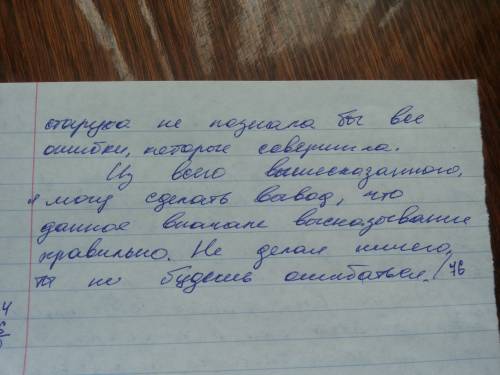 старуха не познала бы все
ошибки, которые совершила.
Из всего вышесказанного,
я могу сделать вывод, что
данное вначале высказывание
правильно. Не делая ничего,
ты не будешь ошибаться. /76
4